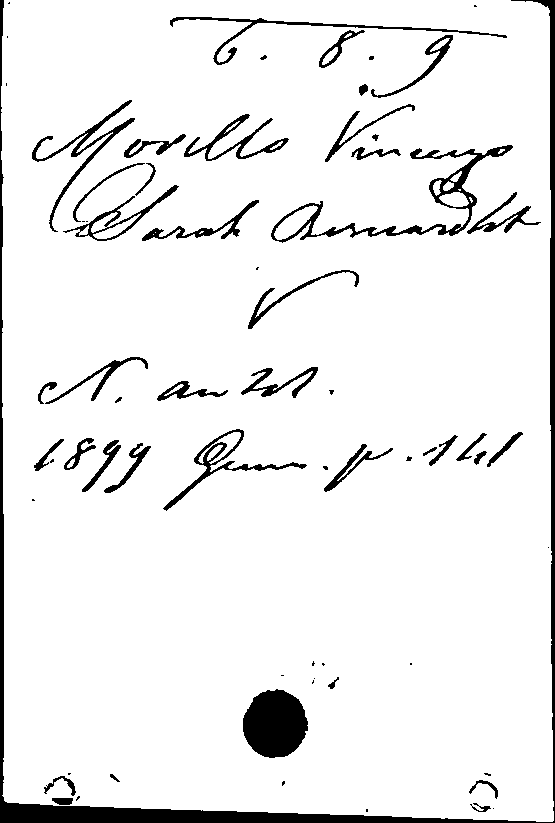 6. 8. 9
Morello Vincenzo
Sarah Bernardht
V
N. antol.
1899 Giu. p. 141